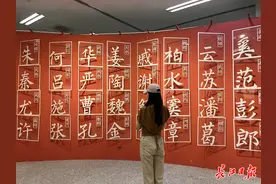 朱秦尤许
何吕施张
华严曹孔
姜陶魏金
戚谢
柏水窦章
云苏潘葛
奚范彭郎
长江日报